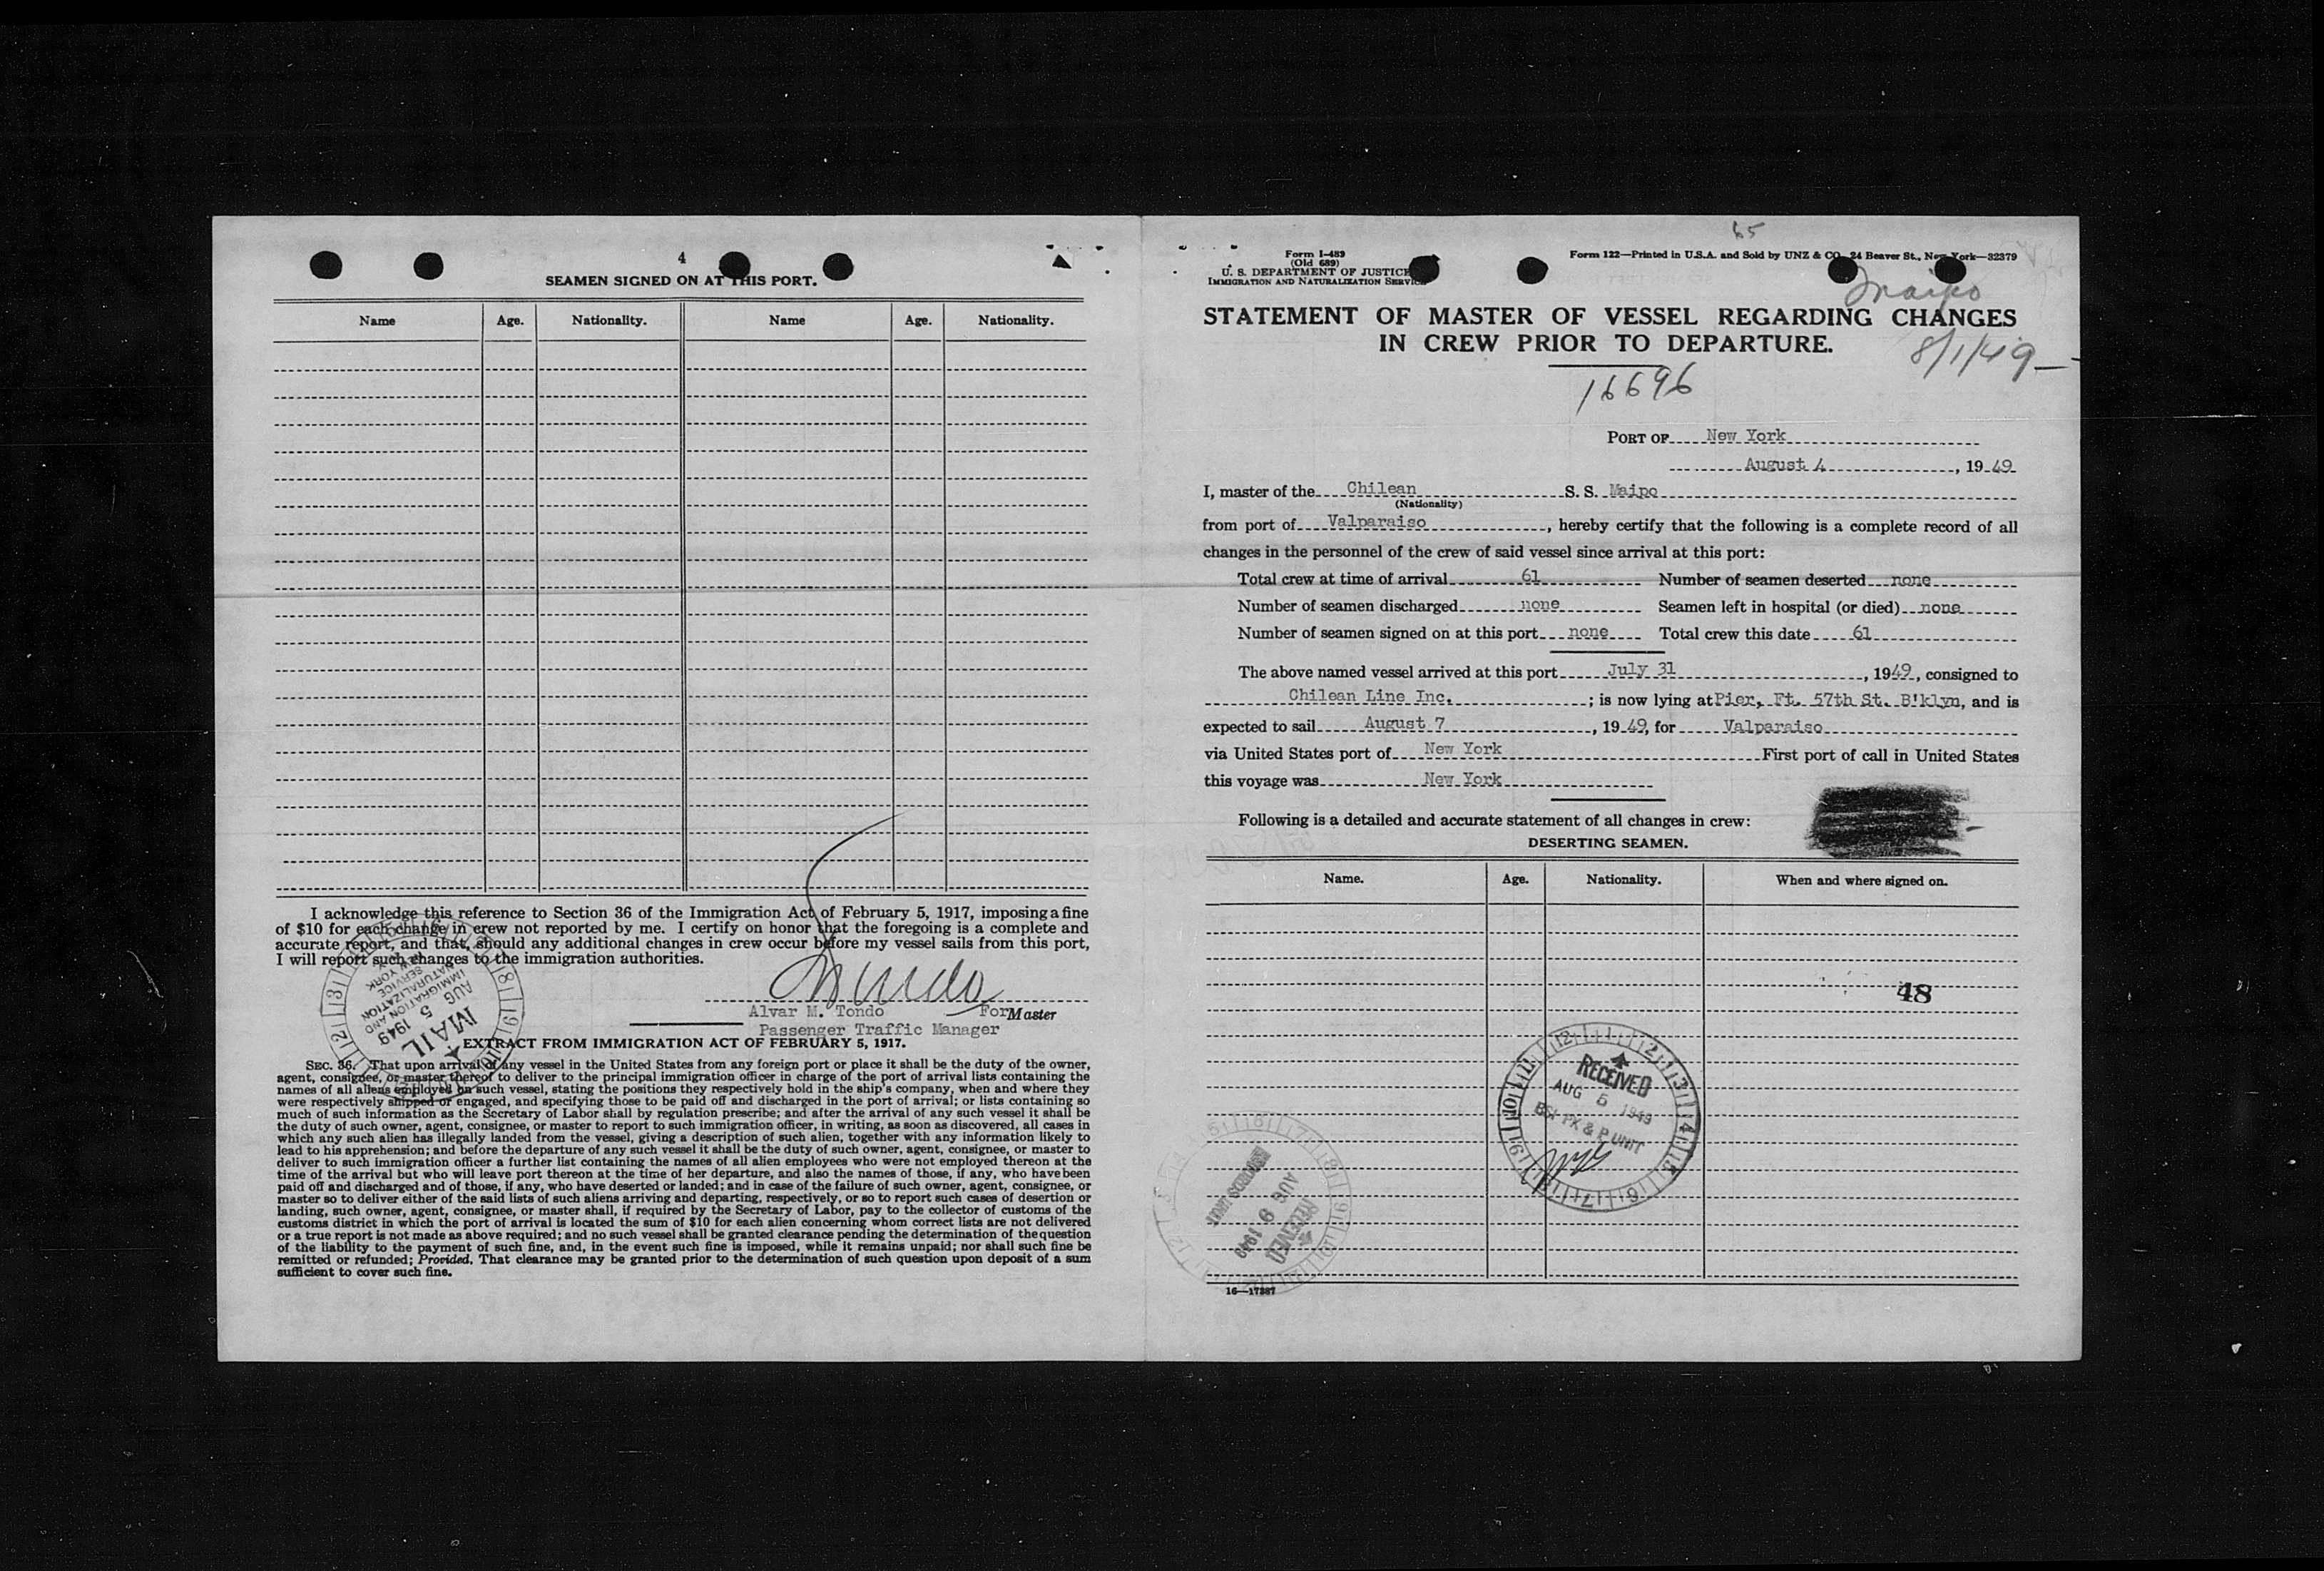 4
SEAMEN SIGNED ON AT THIS PORT.
Name Age. Nationality. Name Age. Nationality.
I acknowledge this reference to Section 36 of the Immigration Act of February 5, 1917, imposing a fine
of $10 for each change in crew not reported by me. I certify on honor that the foregoing is a complete and
accurate report, and that, should any additional changes in crew occur before my vessel sails from this port,
I will report such changes to the immigration authorities.
Tondo
Alvar M. Tondo For Master
Passenger Traffic Manager
IMMIGRATION AND
NATURALIZATION
SERVICE
NEW YORK
AUG
5
1949
MAIL
EXTRACT FROM IMMIGRATION ACT OF FEBRUARY 5, 1917.
SEC. 36. That upon arrival of any vessel in the United States from any foreign port or place it shall be the duty of the owner,
agent, consignee, or master thereof to deliver to the principal immigration officer in charge of the port of arrival lists containing the
names of all aliens employed on such vessel, stating the positions they respectively hold in the ship's company, when and where they
were respectively shipped or engaged, and specifying those to be paid off and discharged in the port of arrival; or lists containing so
much of such information as the Secretary of Labor shall by regulation prescribe; and after the arrival of any such vessel it shall be
the duty of such owner, agent, consignee, or master to report to such immigration officer, in writing, as soon as discovered, all cases in
which any such alien has illegally landed from the vessel, giving a description of such alien, together with any information likely to
lead to his apprehension; and before the departure of any such vessel it shall be the duty of such owner, agent, consignee, or master to
deliver to such immigration officer a further list containing the names of all alien employees who were not employed thereon at the
time of the arrival but who will leave port thereon at the time of her departure, and also the names of those, if any, who have been
paid off and discharged and of those, if any, who have deserted or landed; and in case of the failure of such owner, agent, consignee, or
master so to deliver either of the said lists of such aliens arriving and departing, respectively, or so to report such cases of desertion or
landing, such owner, agent, consignee, or master shall, if required by the Secretary of Labor, pay to the collector of customs of the
customs district in which the port of arrival is located the sum of $10 for each alien concerning whom correct lists are not delivered
or a true report is not made as above required; and no such vessel shall be granted clearance pending the determination of the question
of the liability to the payment of such fine, and, in the event such fine is imposed, while it remains unpaid; nor shall such fine be
remitted or refunded; Provided, That clearance may be granted prior to the determination of such question upon deposit of a sum
sufficient to cover such fine.
65
Form I-489
(Old 689)
U. S. DEPARTMENT OF JUSTICE
IMMIGRATION AND NATURALIZATION SERVICE
Form 122—Printed in U.S.A. and Sold by UNZ & CO. 24 Beaver St., New York—32379
Maipo
STATEMENT OF MASTER OF VESSEL REGARDING CHANGES
IN CREW PRIOR TO DEPARTURE.
8/1/49
16696
PORT OF New York
August 4, 1949
I, master of the Chilean S. S. Maipo
(Nationality)
from port of Valparaiso, hereby certify that the following is a complete record of all
changes in the personnel of the crew of said vessel since arrival at this port:
Total crew at time of arrival 61 Number of seamen deserted none
Number of seamen discharged none Seamen left in hospital (or died) none
Number of seamen signed on at this port none Total crew this date 61
The above named vessel arrived at this port July 31, 1949, consigned to
Chilean Line Inc.; is now lying at Pier, Ft. 57th St. B'klyn, and is
expected to sail August 7, 1949, for Valparaiso
via United States port of New York First port of call in United States
this voyage was New York
Following is a detailed and accurate statement of all changes in crew:
DESERTING SEAMEN.
Name. Age. Nationality. When and where signed on.
48
RECEIVED
AUG 5 1949
BSI PX & P UNIT
RECEIVED
AUG 9 1949
RECORDS UNIT
16—17387